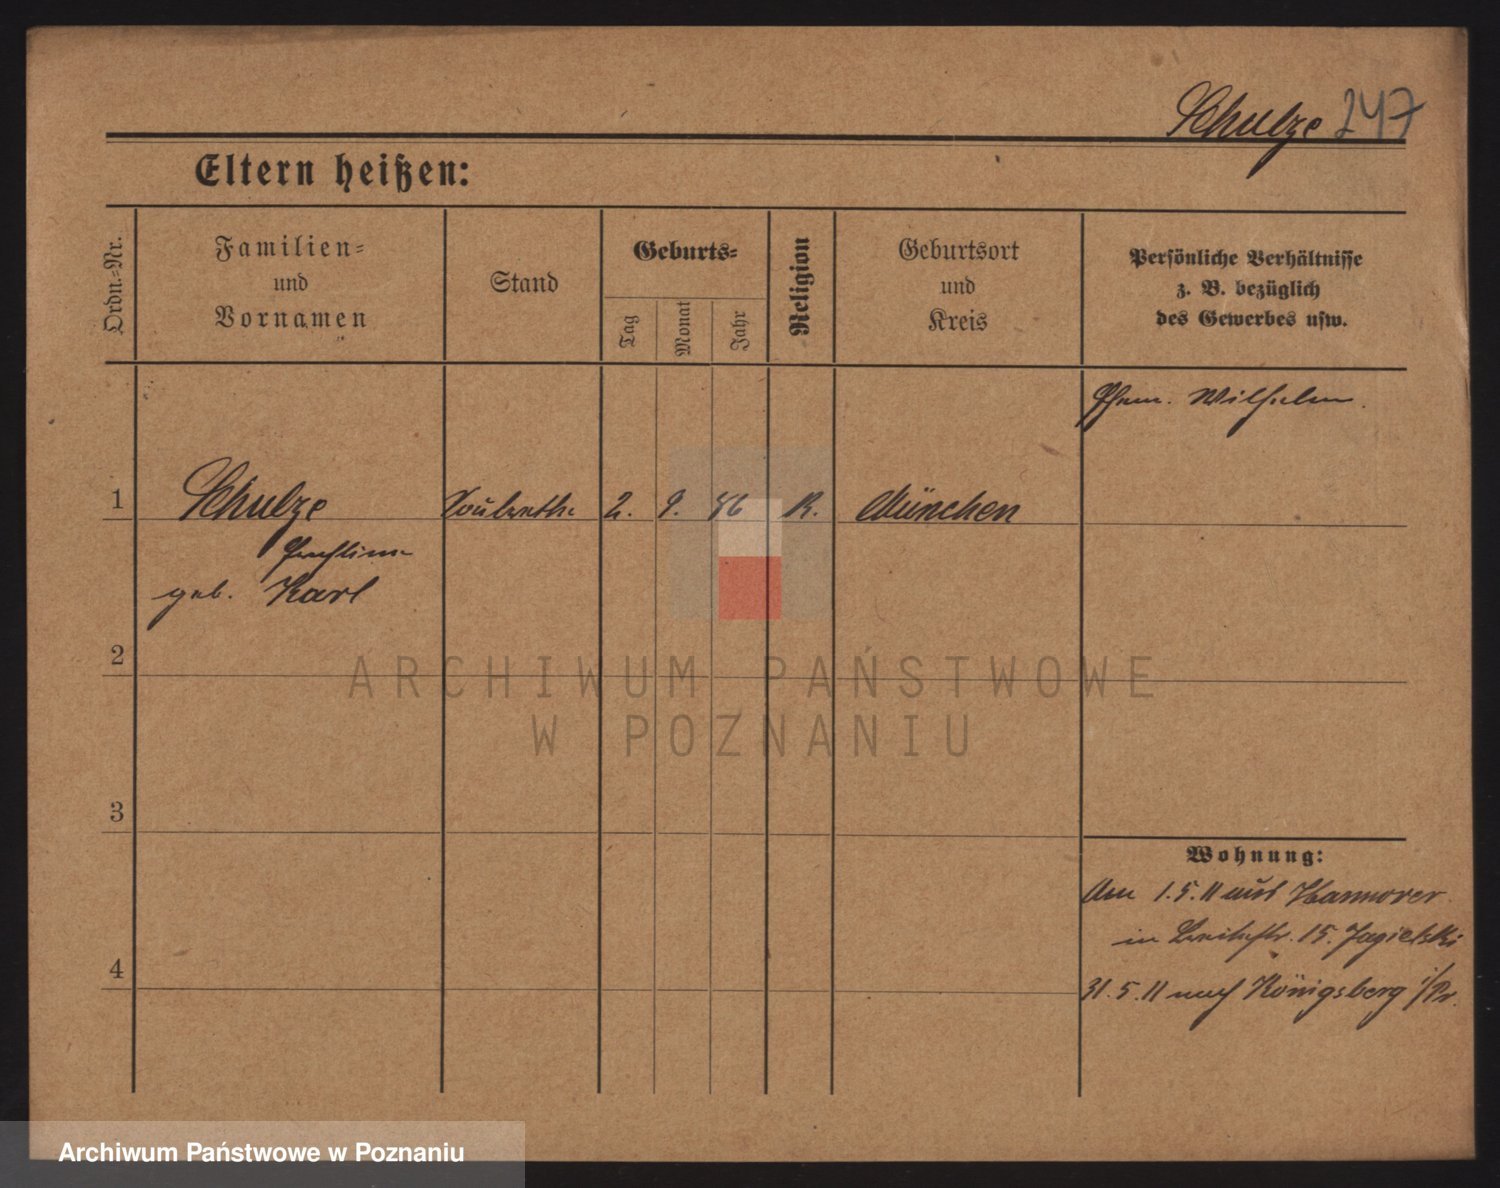 Schulze 247
Eltern heißen:
Ordn.-Nr.
Familien-
und
Vornamen
Stand
Geburts-
Tag
Monat
Jahr
Religion
Geburtsort
und
Kreis
Persönliche Verhältnisse
z. B. bezüglich
des Gewerbes usw.
Ehem. Wilhelm.
1 Schulze 2. 9. 86 K. München
geb. Karl
2
3
4
Wohnung:
Am 1.5.11 aus Hannover
in Breitestr. 15. Jagielski
31.5.11 nach Königsberg i/Pr.
ARCHIWUM PAŃSTWOWE
W POZNANIU
Archiwum Państwowe w Poznaniu